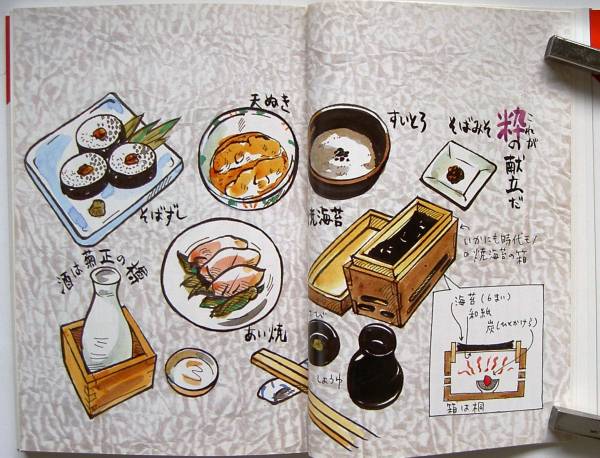 これが
粋の献立だ
そばみそ
すいとろ
天ぬき
そばずし
焼海苔
いかにも時代モノ
焼海苔の箱
酒は菊正の樽
あい焼
しょうゆ
海苔(6まい)
和紙
炭(ひとかけら)
箱は桐